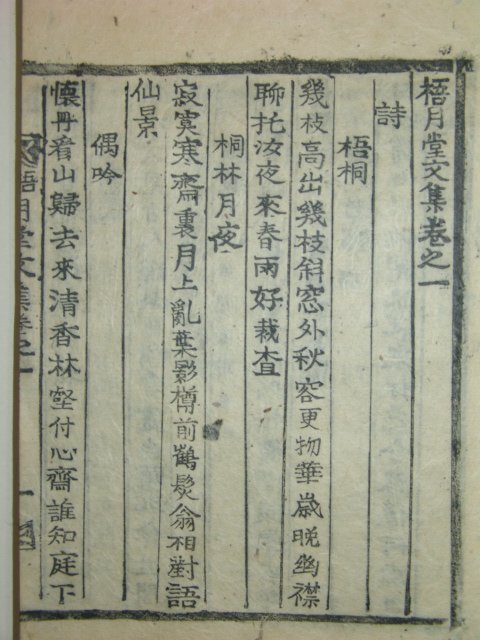 梧月堂文集卷之一
詩
梧桐
幾枝高出幾枝斜窓外秋容更物華歲晩幽襟
聊托汝夜來春雨好栽査
桐林月夜
寂寞寒齋裏月上亂葉影樽前鶴髮翁相對語
仙景
偶吟
懷冊看山歸去來清香林壑付心齋誰知庭下
梧月堂文集卷之一
一